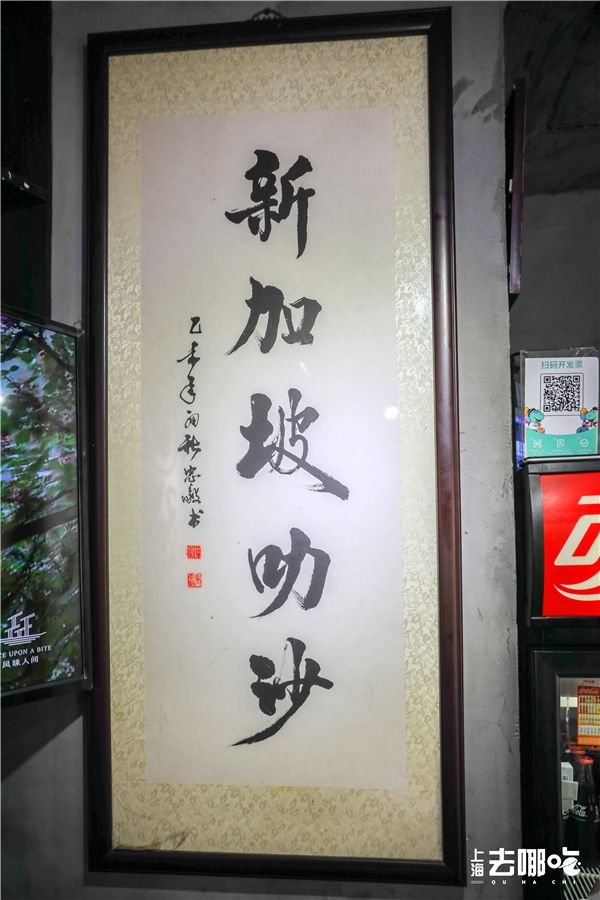 新加坡叻沙
乙未年初秋忠敏书
扫码开发票
CE UPON A BITE
风味人间
Coca-Cola
上海去哪吃
QU NA CHI